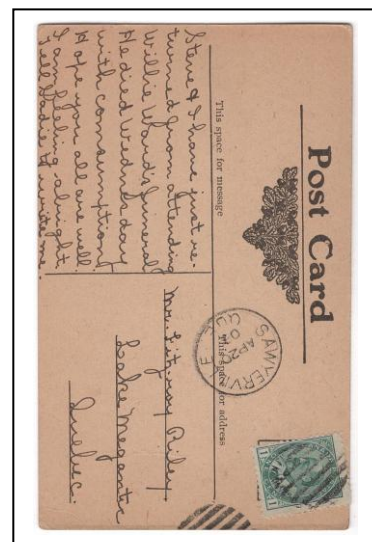 Post Card
This space for message
This space for address
SAWYERVILLE
AP 20
QUE
Steve & I have just re-
turned from attending
Willie Ward's funeral
He died Wednesday
with consumption
Hope you all are well.
I am feeling alright
Tell Sadie to write me.
Mr. Fitzroy Riley
Lake Megantic
Quebec.
1
1